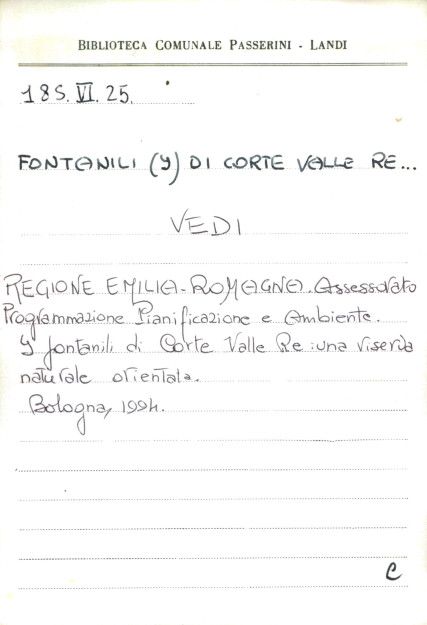 BIBLIOTECA COMUNALE PASSERINI - LANDI
185. VI. 25.
FONTANILI (I) DI CORTE VALLE RE...
VEDI
REGIONE EMILIA-ROMAGNA. Assessorato
Programmazione Pianificazione e Ambiente.
I fontanili di Corte Valle Re : una riserva
naturale orientata.
Bologna, 1994.
C